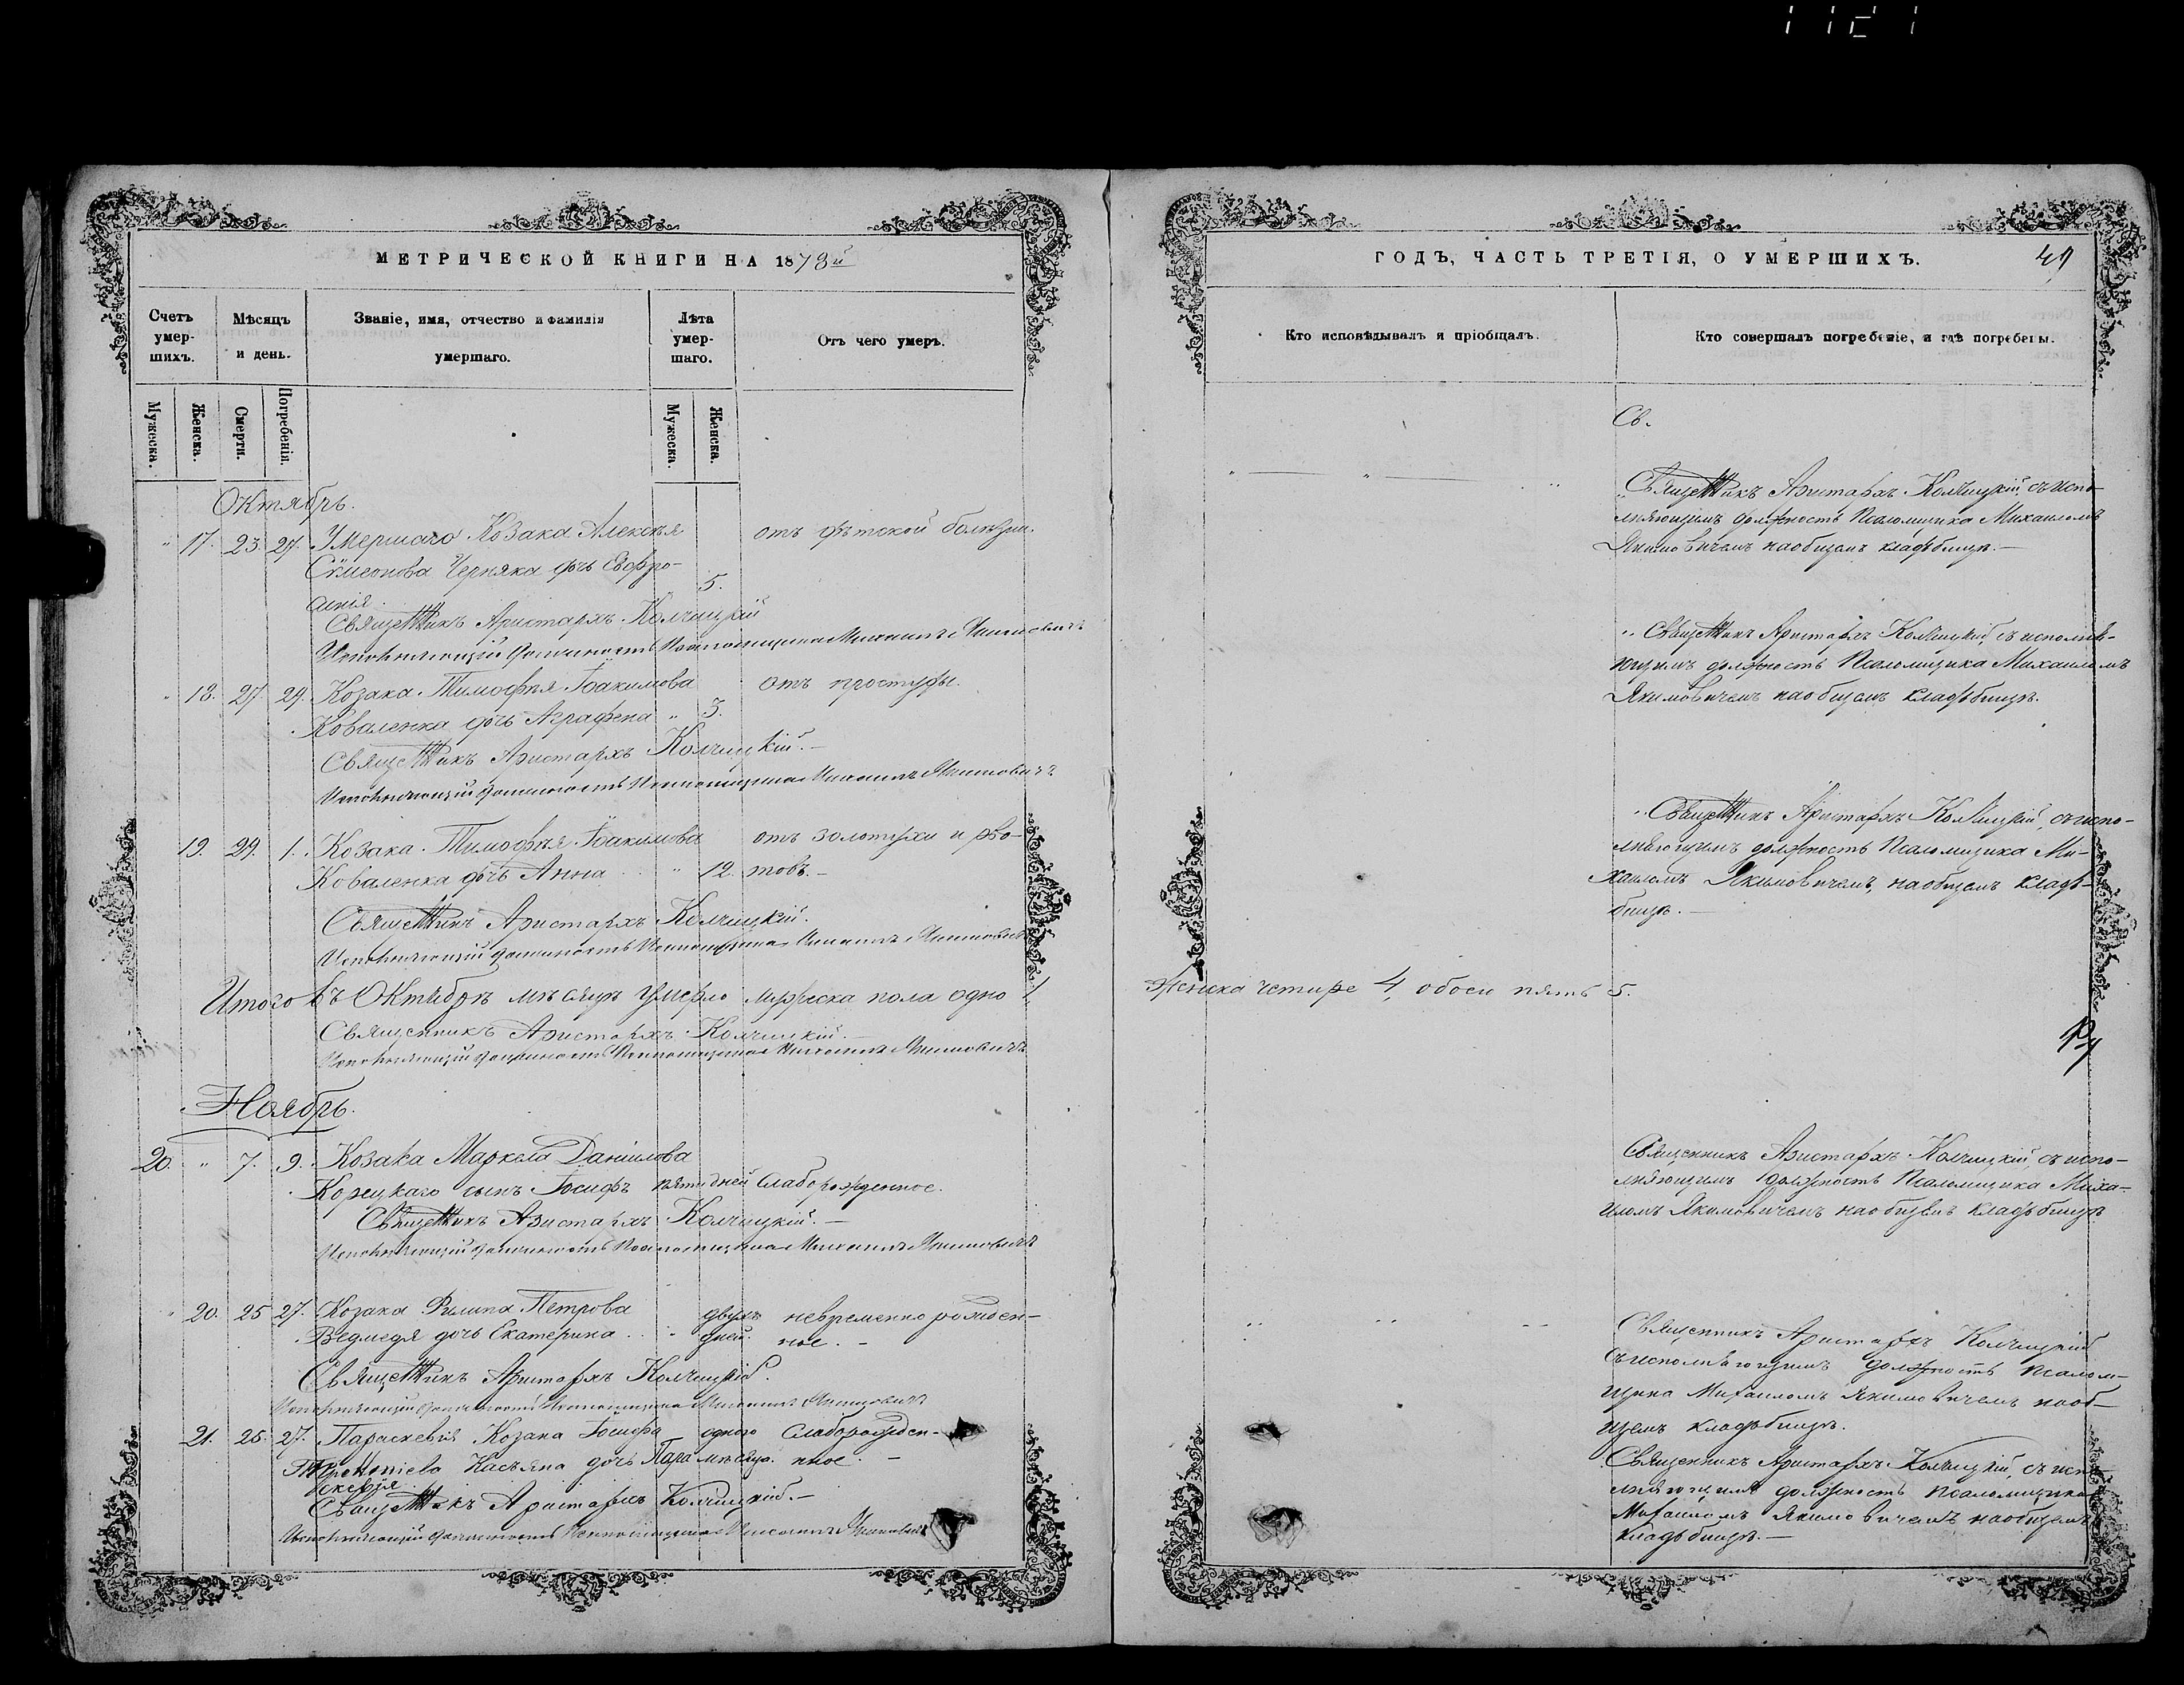 МЕТРИЧЕСКОЙ КНИГИ НА 1878й
Счетъ умер-шихъ.
Мѣсяцъ и день.
Званіе, имя, отчество и фамилія умершаго.
Лѣта умер-шаго.
Отъ чего умеръ.
Мужеска.
Женска.
Смерти.
Погребенія.
Мужеска.
Женска.
Октябрь.
" 17. 23. 27. Умершаго Козака Алексѣя отъ дѣтской болѣзни.
Сѵмеонова Черняка дочь Евфро-
синія. 5.
Священникъ Аристархъ Колчицкій
Исполняющій должность Псаломщика Михаилъ Якимовичъ
" 18. 27. 29. Козака Тимофѣя Іоакимова отъ простуды
Коваленка дочь Аграфена " 3.
Священникъ Аристархъ Колчицкій.—
Исполняющій должность Псаломщика Михаилъ Якимовичъ
19. 29. 1. Козака Тимофѣя Іоакимова отъ золотухи и рво-
Коваленка дочь Анна " 12. товъ.—
Священникъ Аристархъ Колчицкій.
Исполняющій должность Псаломщика Михаилъ Якимовичъ
Итого въ Октябрѣ мѣсяцѣ умерло мужеска пола одно 1,
Священникъ Аристархъ Колчицкій.—
Исполняющій должность Псаломщика Михаилъ Якимовичъ
Ноябрь.
20. " 7. 9. Козака Маркела Даніилова
Корецкаго сынъ Іосифъ пяти дней Слаборожденное.
Священникъ Аристархъ Колчицкій.—
Исполняющій должность Псаломщика Михаилъ Якимовичъ
" 20. 25 27. Козака Филипа Петрова двухъ невременно рожден-
Ведмедя дочь Екатерина " дней. ное.—
Священникъ Аристархъ Колчицкій.
Исполняющій должность Псаломщика Михаилъ Якимовичъ
21. 25. 27. Параскевія Козака Іосифа одного Слаборожден-
Касьяна дочь Пара мѣсяца. нное.—
скевія
Священникъ Аристархъ Колчицкій.—
Исполняющій должность Псаломщика Михаилъ Якимовичъ
ГОДЪ, ЧАСТЬ ТРЕТІЯ, О УМЕРШИХЪ.
Кто исповѣдывалъ и пріобщалъ.
Кто совершалъ погребеніе, и гдѣ погребены.
Св.
Священникъ Аристархъ Колчицкій, съ испо-
лняющимъ должность Псаломщика Михаиломъ
Якимовичемъ на общемъ кладбищѣ.—
" Священникъ Аристархъ Колчицкій, съ исполня-
ющимъ должность Псаломщика Михаиломъ
Якимовичемъ на общемъ кладбищѣ.
" Священникъ Аристархъ Колчицкій, съ испо-
лняющимъ должность Псаломщика Ми-
хаиломъ Якимовичемъ, на общемъ клад-
бищѣ.—
Женска четыре 4, обоего пять 5.
Священникъ Аристархъ Колчицкій, съ испо-
лняющимъ должность Псаломщика Миха-
иломъ Якимовичемъ на общемъ кладбищѣ
Священникъ Аристархъ Колчицкій
съ исполняющимъ должность Псалом-
щика Михаиломъ Якимовичемъ на об-
щемъ кладбищѣ.
Священникъ Аристархъ Колчицкій, съ испо-
лняющимъ должность Псаломщика
Михаиломъ Якимовичемъ на общемъ
кладбищѣ.—